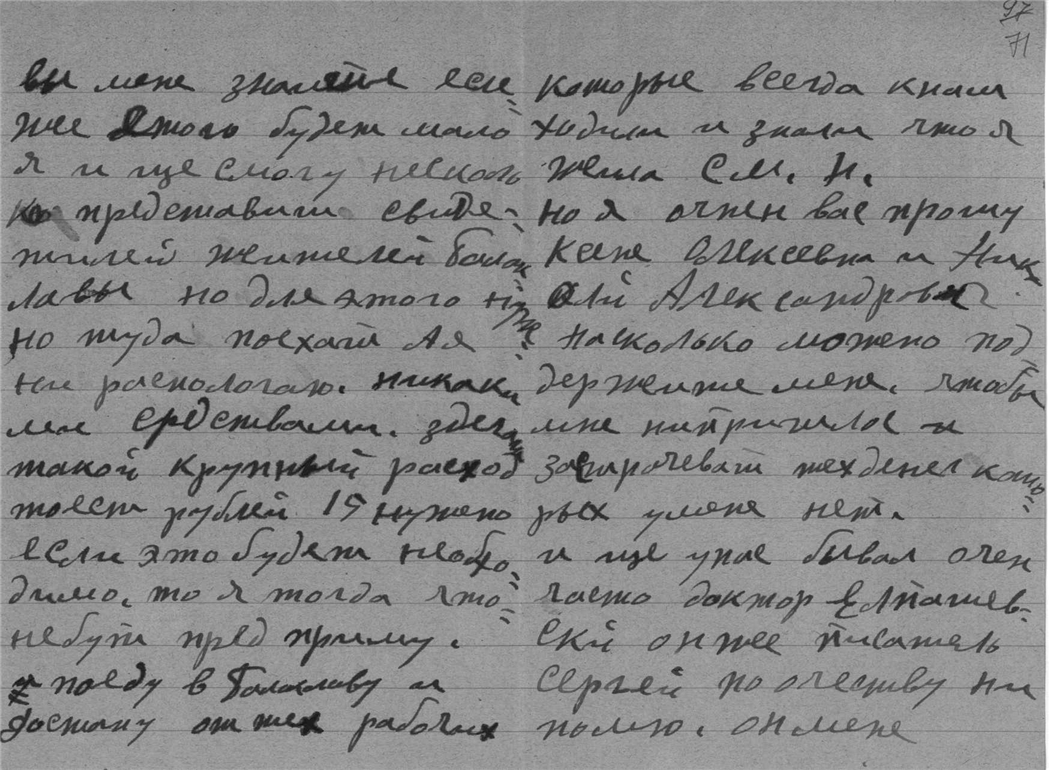 97
71
вы мене знаете если
же этого будет мало
я и ще смогу несколь
ко представити свиде-
тилей жителей Балак
лавы но для этого нуж-
но туда поехати Ая
ни распологаю. никаки
ми средствами. здесь
такой крупный расход
тоесть рублей 15 нужно
если это будет необхо-
димо. то я тогда что-
небути пред приму.
и поеду в Балаклаву и
достану от тех рабочих
которые всегда кнам
ходили и знали что я
жена С.М. Н.
но я очнен вас прошу
Ксене Олексевна и Ник
олй Александрович.
насколько можено под
держите мене. чтобы
мне нипришлос и
застрочевати техденег кото-
рых умене нет.
и ще унас бывал очен
часто доктор Елпатиев-
ский онже писатель
Сергей по очеству ни
помню. онмене